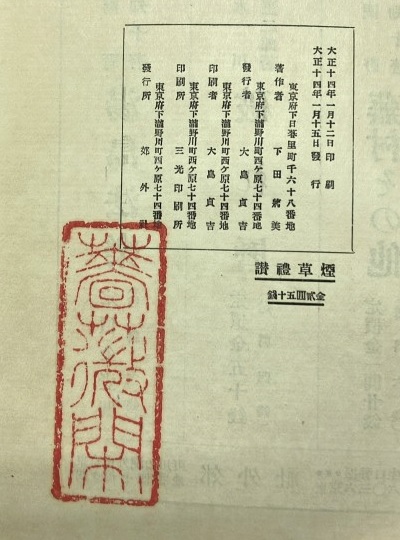 大正十四年一月十二日印刷
大正十四年一月十五日發行
東京府下日暮里町千六十八番地
著作者 下田將美
東京府下瀧野川町西ケ原七十四番地
發行者 大島貞吉
東京府下瀧野川町西ケ原七十四番地
印刷者 大島貞吉
東京府下瀧野川町西ケ原七十四番地
印刷所 三光印刷所
東京府下瀧野川町西ケ原七十四番地
發行所 郊外社
煙草禮讃
金貳圓五十錢